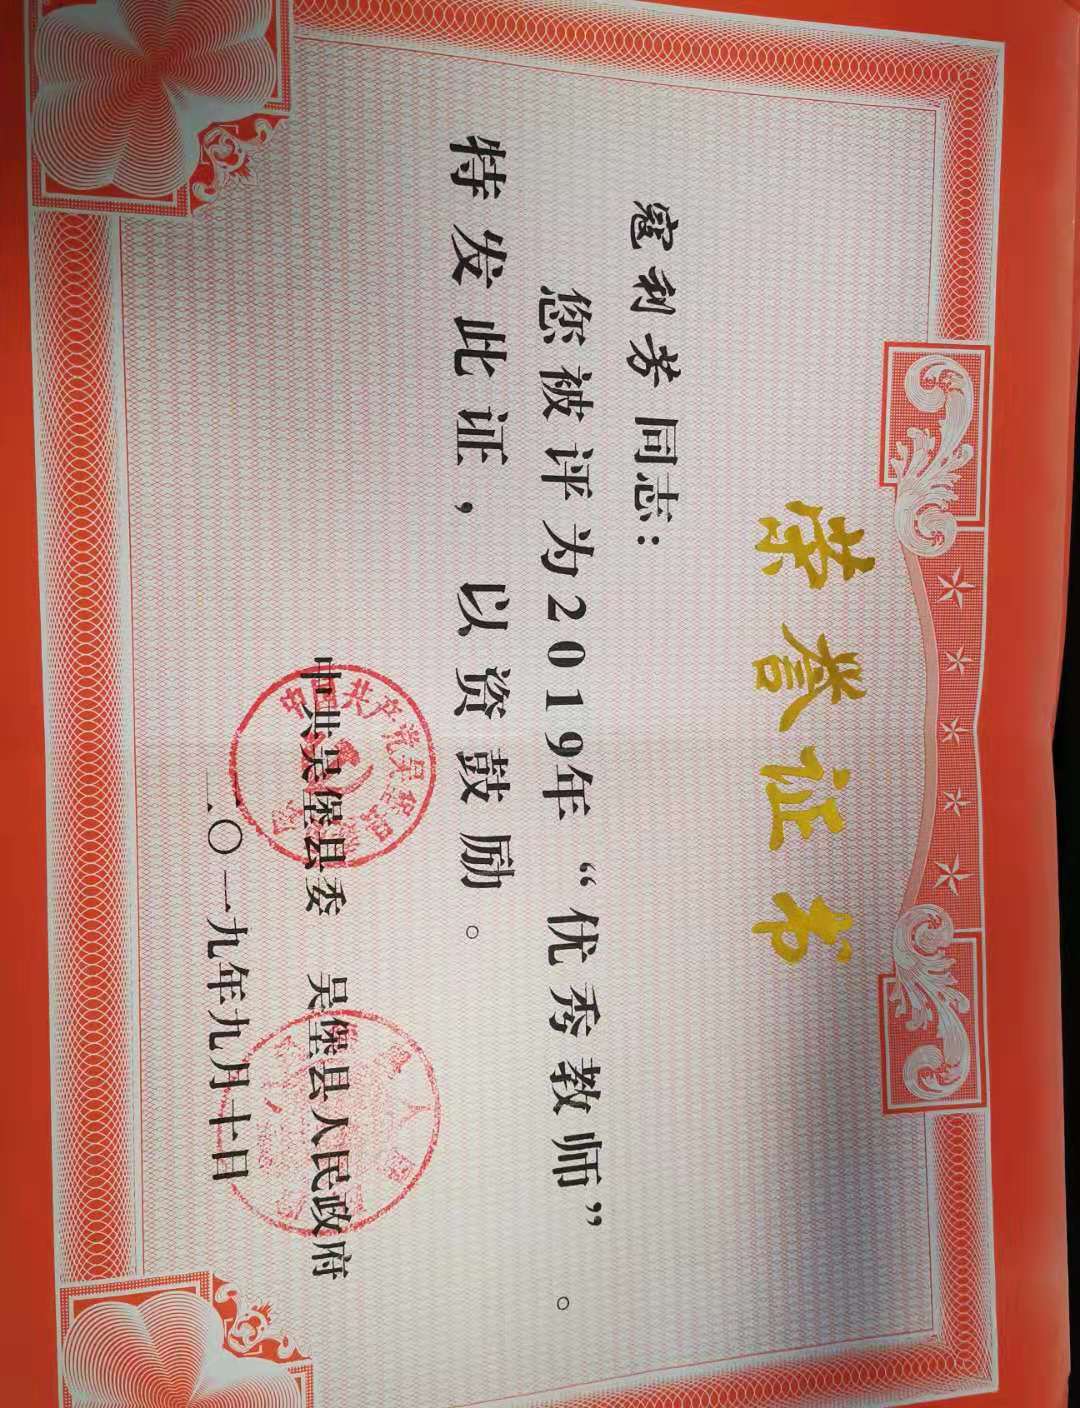 荣誉证书
寇利芳 同志：
您被评为2019年“优秀教师”。
特发此证，以资鼓励。
中共吴堡县委 吴堡县人民政府
二〇一九年九月十日
中国共产党吴堡县